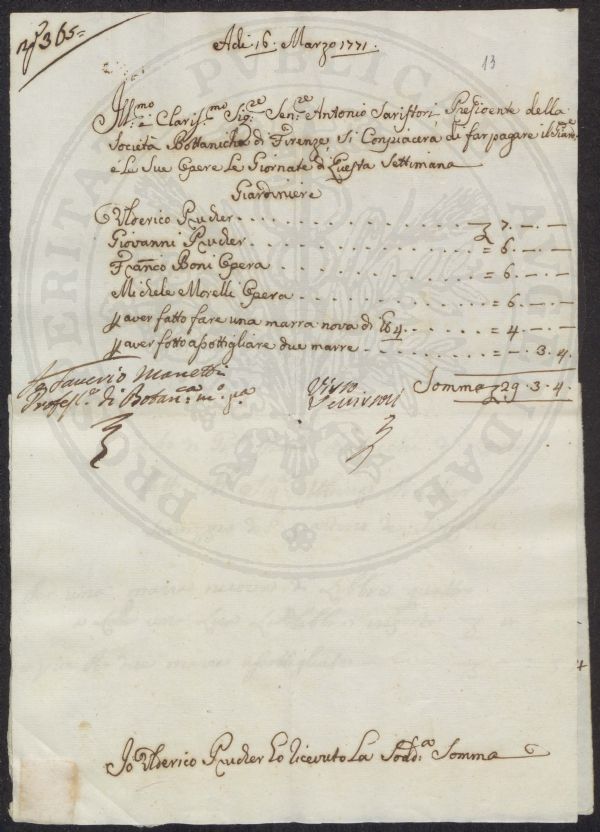 N.º 365=
Adi 16: Marzo 1771.
13
Ill:mo e Clariss:mo Sig:re Sen:re Antonio Saristori Presidente della
Società Bottanicha di Firenze, Si Conpiacera di far pagare il Giar:re
e le Sue Opere le Giornate di Questa Settimana
Giardiniere
Ulderico Rucler . . . 7. — . —
Giovanni Rucler . . . = 6. — . —
Franco Boni Opera . . . = 6. — . —
Michele Morelli Opera . . . = 6. — . —
p aver fatto fare una marra nova di lb 4. . . = 4. — . —
p aver fatto asottigliare due marre . . . = — . 3. 4.
Somma 29. 3. 4.
Saverio Manetti
Profess.e di Botan:ca m:o p:a
Visto
Io Ulderico Rucler ho ricevuto La Sodd:a Somma
PROSPERITATI PUBLICAE AUGENDAE